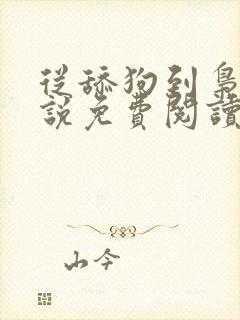 從舔狗到梟
說免費閱讀
山今